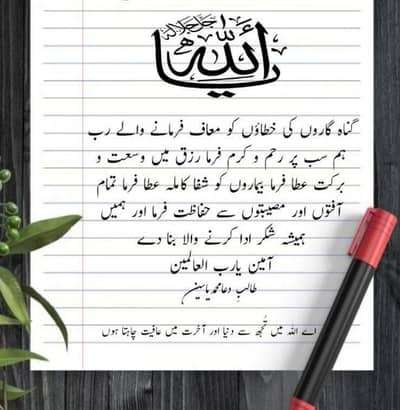 یا اللہ جل جلالہ
گناہ گاروں کی خطاؤں کو معاف فرمانے والے رب
ہم سب پر رحم و کرم فرما رزق میں وسعت و
برکت عطا فرما بیماروں کو شفا کاملہ عطا فرما تمام
آفتوں اور مصیبتوں سے حفاظت فرما اور ہمیں
ہمیشہ شکر ادا کرنے والا بنا دے
آمین یارب العالمین
طالبِ دعا محمد یاسین
اے اللہ میں تُجھ سے دنیا اور آخرت میں عافیت چاہتا ہوں